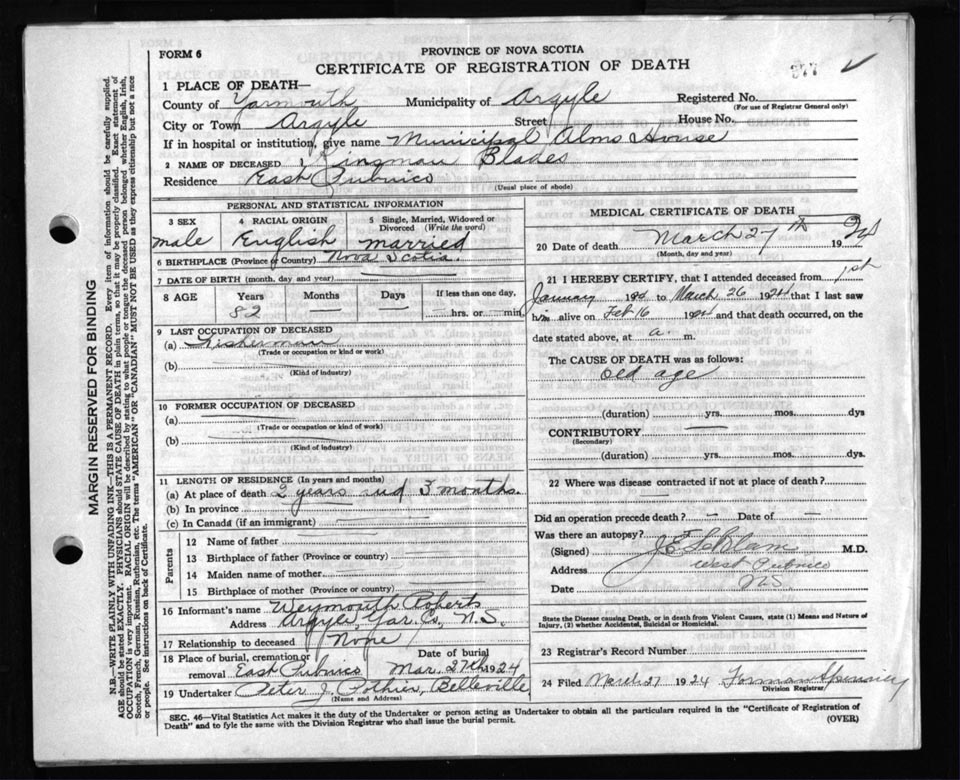 FORM 6
PROVINCE OF NOVA SCOTIA
CERTIFICATE OF REGISTRATION OF DEATH
377
1 PLACE OF DEATH—
County of Yarmouth Municipality of Argyle Registered No.
(For use of Registrar General only)
City or Town Argyle Street House No.
If in hospital or institution, give name Municipal Alms House
2 NAME OF DECEASED Kingman Blades
Residence East Pubnico
(Usual place of abode)
PERSONAL AND STATISTICAL INFORMATION
3 SEX 4 RACIAL ORIGIN 5 Single, Married, Widowed or Divorced (Write the word)
male English married
6 BIRTHPLACE (Province or Country) Nova Scotia.
7 DATE OF BIRTH (month, day and year)
8 AGE Years Months Days If less than one day,
82 hrs. or min
9 LAST OCCUPATION OF DECEASED
(a) Fisherman
(Trade or occupation or kind or work)
(b)
(Kind of industry)
10 FORMER OCCUPATION OF DECEASED
(a)
(Trade or occupation or kind or work)
(b)
(Kind of industry)
11 LENGTH OF RESIDENCE (In years and months)
(a) At place of death 2 years and 3 months.
(b) In province
(c) In Canada (if an immigrant)
Parents
12 Name of father
13 Birthplace of father (Province or country)
14 Maiden name of mother
15 Birthplace of mother (Province or country)
16 Informant's name Weymouth Roberts
Address Argyle, Yar. Co., N.S.
17 Relationship to deceased None
18 Place of burial, cremation or removal East Pubnico Date of burial Mar. 27th 1924
19 Undertaker Peter J. Pothier, Belleville
(Name and Address)
MEDICAL CERTIFICATE OF DEATH
20 Date of death March 27th 1924
(Month, day and year)
21 I HEREBY CERTIFY, that I attended deceased from 1st
January 1924 to March 26 1924 that I last saw
him alive on Feb 16 1924 and that death occurred, on the
date stated above, at a. m.
The CAUSE OF DEATH was as follows:
old age
(duration) yrs. mos. dys
CONTRIBUTORY
(Secondary)
(duration) yrs. mos. dys.
22 Where was disease contracted if not at place of death?
Did an operation precede death? — Date of —
Was there an autopsy?
(Signed) J E LeBlanc M.D.
Address West Pubnico
Date NS
State the Disease causing Death, or in death from Violent Causes, state (1) Means and Nature of Injury, (2) whether Accidental, Suicidal or Homicidal.
23 Registrar's Record Number
24 Filed March 27 1924 Forman Spinney
Division Registrar
SEC. 46—Vital Statistics Act makes it the duty of the Undertaker or person acting as Undertaker to obtain all the particulars required in the "Certificate of Registration of
Death" and to fyle the same with the Division Registrar who shall issue the burial permit.
(OVER)
MARGIN RESERVED FOR BINDING
N.B.—WRITE PLAINLY WITH UNFADING INK—THIS IS A PERMANENT RECORD. Every item of information should be carefully supplied.
AGE should be stated EXACTLY. PHYSICIANS should STATE CAUSE OF DEATH in plain terms, so that it may be properly classified. Exact statement of
OCCUPATION is very important. RACIAL ORIGIN will be described by stating to what people or tongue the deceased person belonged whether English, Irish,
Scotch, French, German, Russian, Ruthenian, etc. The terms "AMERICAN" OR "CANADIAN" MUST NOT BE USED as they express citizenship but not a race
or people. See instructions on back of Certificate.